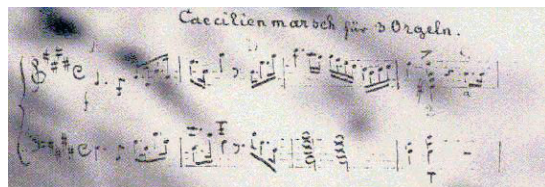 Caecilienmarsch für 3 Orgeln.